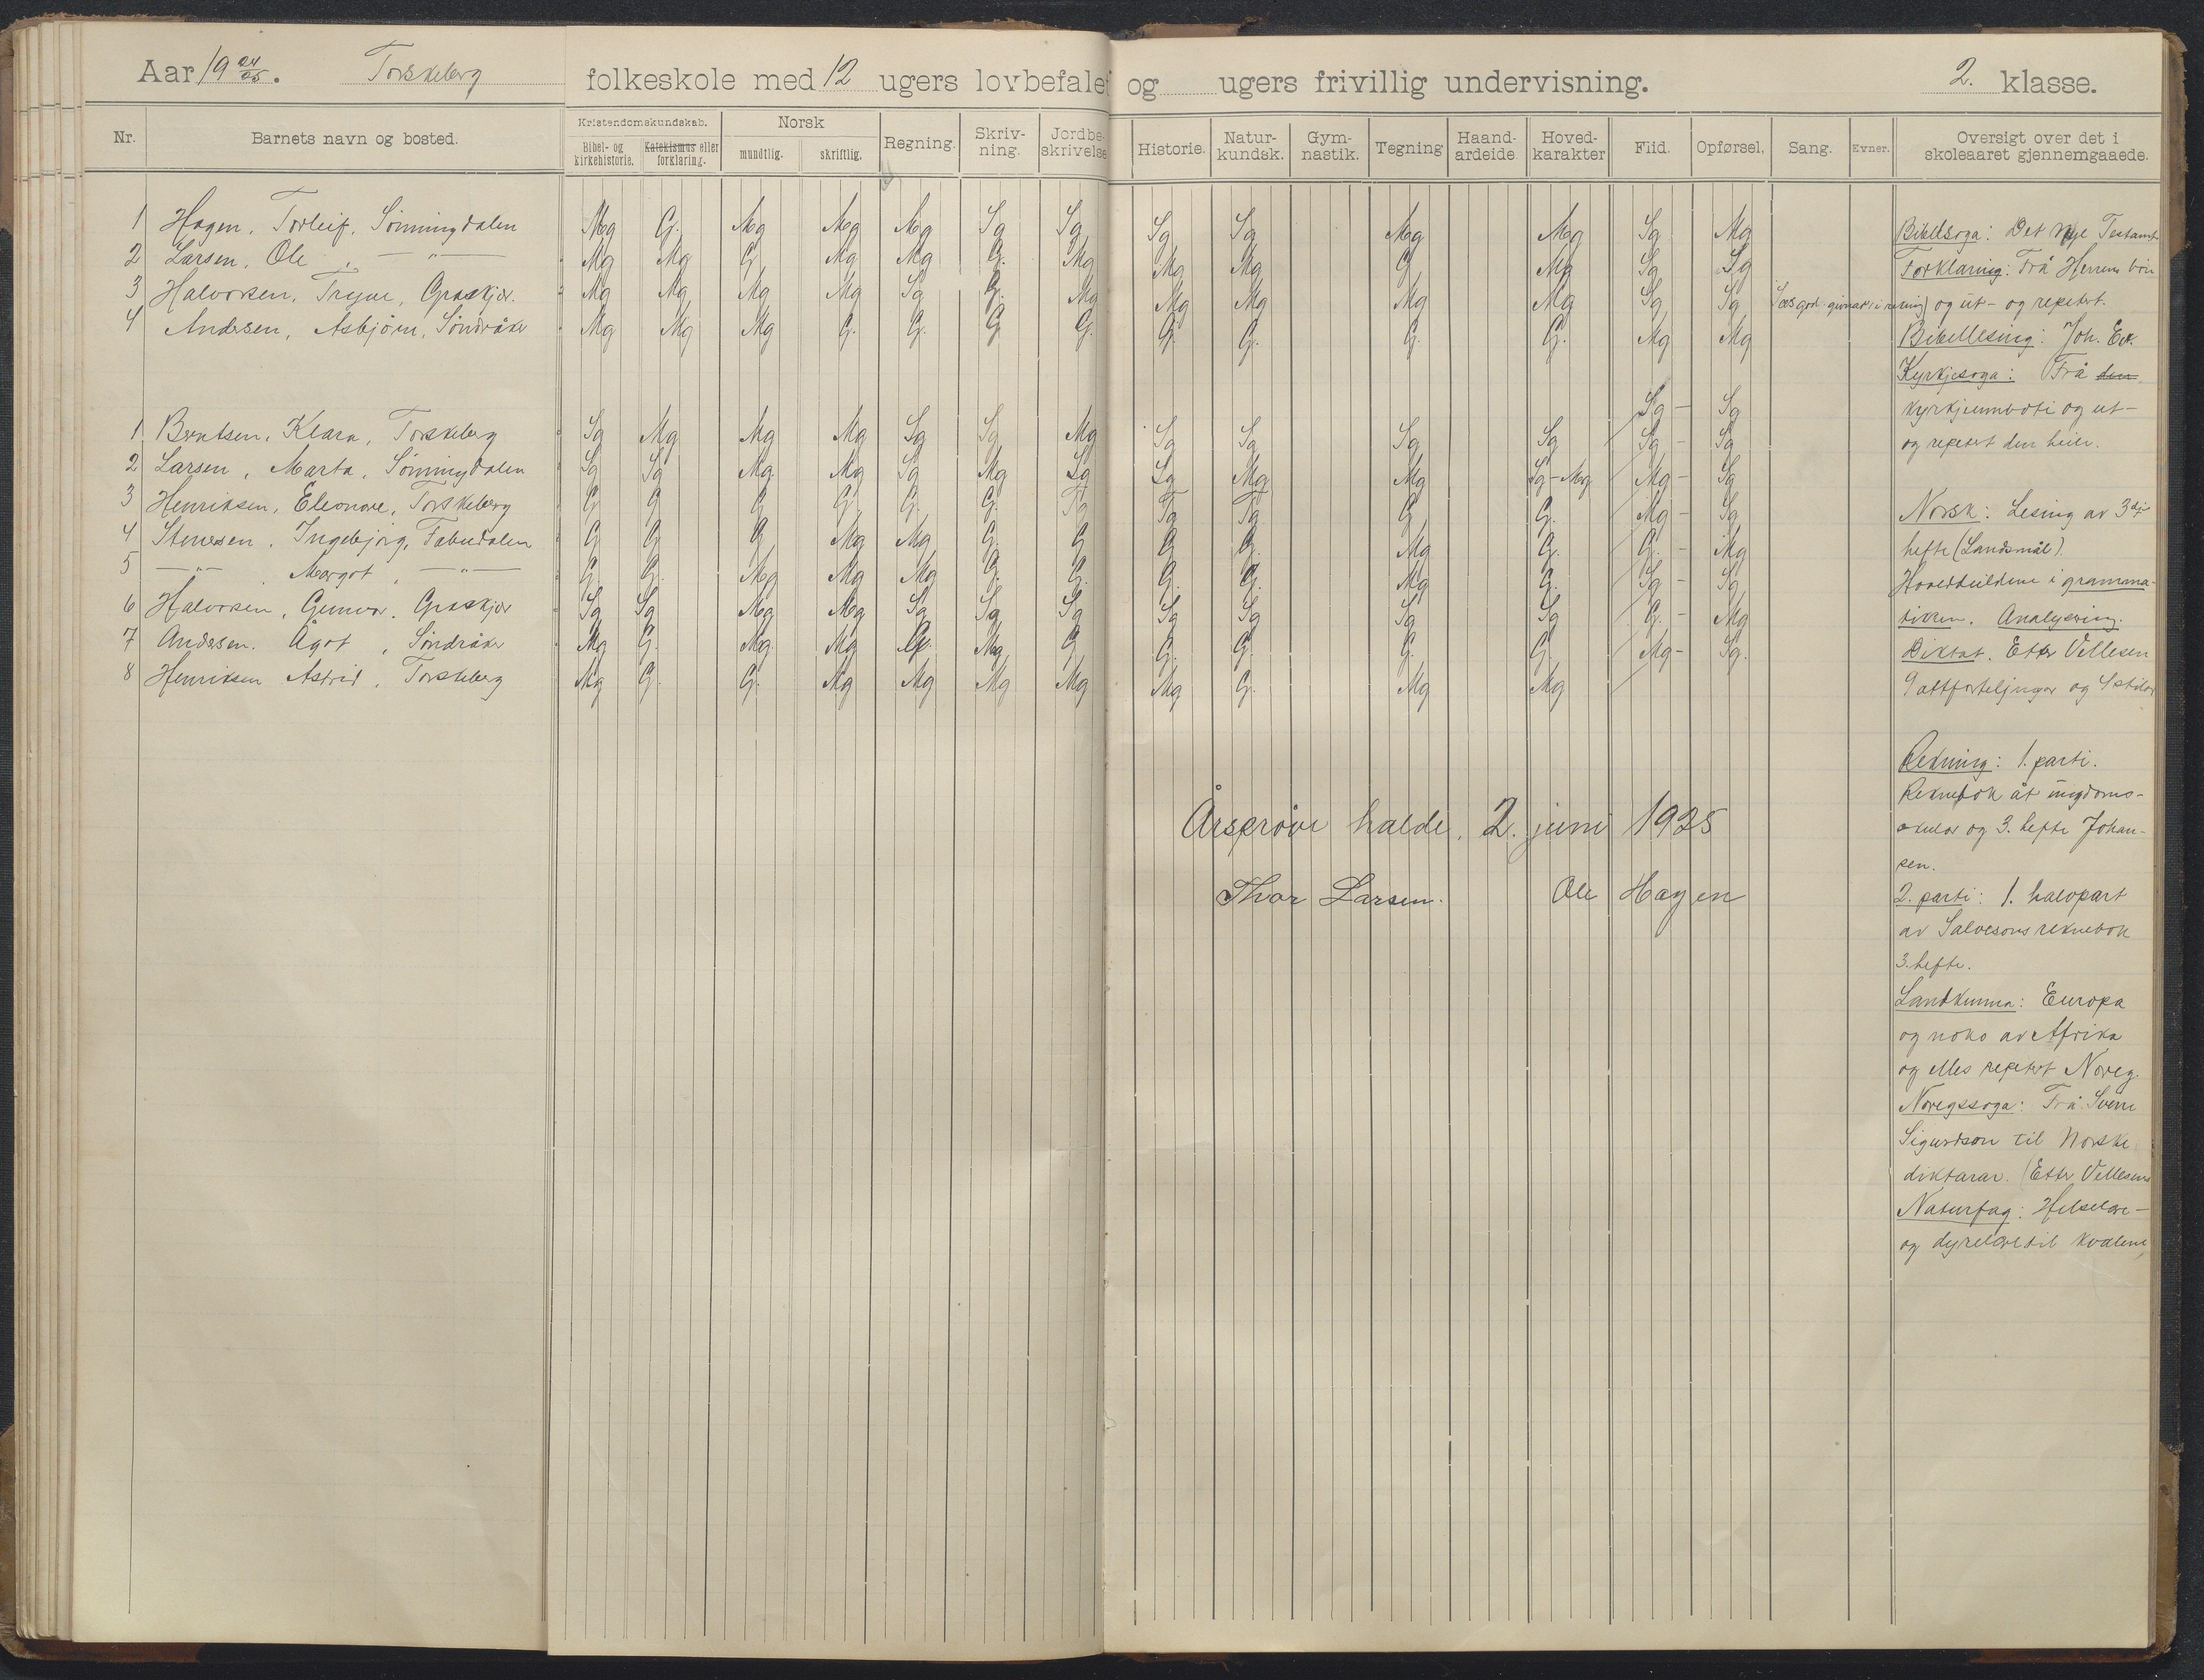 Aar 19 24/25. Torskeberg folkeskole med 12 ugers lovbefalet og ugers frivillig undervisning. 2. klasse.
Nr. Barnets navn og bosted. Kristendomskundskab. Bibel- og kirkehistorie. Katekismus eller forklaring. Norsk mundtlig. skriftlig. Regning. Skriv-ning. Jordbe-skrivelse Historie. Natur-kundsk. Gym-nastik. Tegning Haand-arbeide Hoved-karakter Flid. Opførsel. Sang. Evner. Oversigt over det i skoleaaret gjennemgaaede.
1 Hagen, Torleif, Sønningdalen Mg G. Mg Mg Mg Sg Sg Sg Sg Mg Mg Sg Mg
2 Larsen, Ole, — " — Mg Mg G Mg Mg G. Mg Mg Mg G Mg Sg Sg
3 Halvorsen, Trygve, Graskjær. Mg Mg Mg Mg Sg G. Mg Mg Mg Mg Mg Sg Sg
4 Andersen, Asbjørn, Søndråke Mg Mg Mg G. G. G G. G. G. G. G. Mg Mg
Sg - Sg
1 Berntsen, Klara, Torskeberg Sg Mg Mg Mg Sg Sg Mg Sg Sg Sg Sg Sg - Sg
2 Larsen, Marta, Sønningdalen Sg Sg Mg Mg Sg Mg Sg Sg Mg Mg Sg-Mg Mg - Sg
3 Henriksen, Eleonore, Torskeberg G G G G G. G. Tg Tg Tg G G. Mg - Sg
4 Stensen, Ingebjørg, G G G Mg Mg G. G G G. Mg G. G. - Mg
5 — " — , Margot, — " — G. G. Mg Mg Mg G. G. G. G. Mg G. Sg - Sg
6 Halvorsen, Gunvor, Graskjær Sg Sg Mg Mg Sg Sg Sg Sg Sg Sg Sg G. - Mg
7 Andersen. Ågot, Søndråke Mg G. Mg Mg G. Mg G G. G. G. G. Mg - Sg.
8 Henriksen Astrid, Torskeberg Mg G. G. Mg Mg Mg Mg Mg G. Mg Mg
Årsprøve halde, 2. juni 1925
Thor Larsen. Ole Hagen
Bibelsoga: Det nye Testam
Forklaring: Frå Herrens bøn
og ut- og repetert.
Bibellesing: Joh. Ev.
Kyrkjesoga: Frå den
kyrkjeumboti og ut-
og repetert den heile.
Norsk: Lesing av 3dje
hefte (Landsmål).
i gramma-
tikken. Analysering.
Diktat. Etter Vellesen
9 attforteljingar og 4 stilar
Rekning: 1. parti.
Reknebok åt ungdoms-
skular og 3. hefte Johan-
sen.
2. parti: 1. halvpart
av Salvesons reknebok
3. hefte.
Landkunna: Europa
og noko av Afrika
og elles repetert Noreg.
Noregssoga: Frå Sverre
Sigurdson til Norske
diktarar. (Etter Vellesens
Naturfag: Helselære-
og dyrelære til kvalene